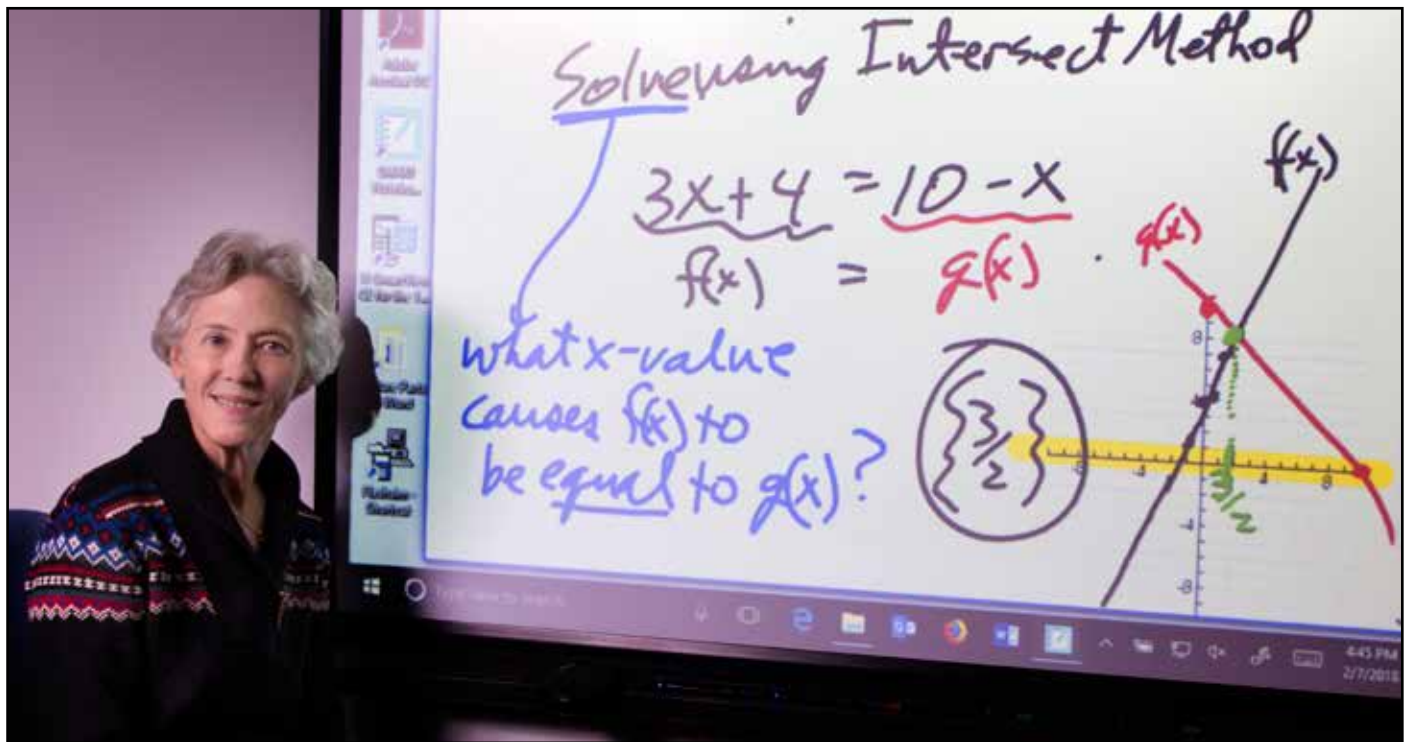 Solve using Intersect Method
3x + 4 = 10 - x
f(x) = g(x)
what x-value
causes f(x) to
be equal to g(x)?
{3/2}
f(x)
g(x)
8
-4
4
8
3/2
-4
-8
Type here to search
4:45 PM
2/7/2018